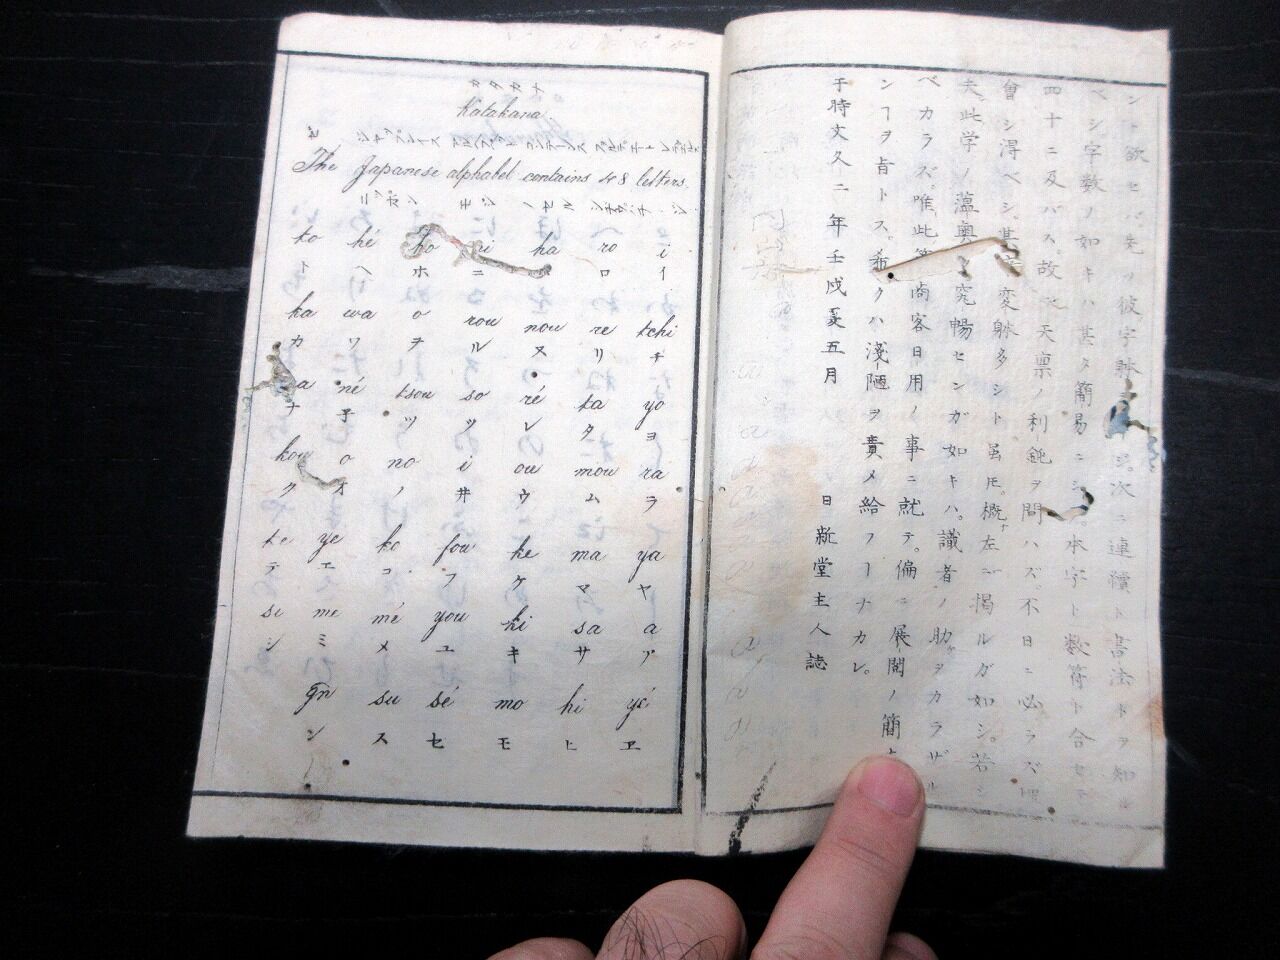 欲セバ先ヅ彼字 次ニ連續ト書法トヲ知ル
ベシ字数ノ如キハ甚タ簡易ニシ 本字ト数符ト合セテ
四十ニ及バス故ニ天稟ノ利鈍ヲ問ハズ。不日ニ必ラズ理
會シ得ベシ。其 変躰多シト虽𪜈。概左ニ掲ルガ如シ。若シ
夫此学ノ蘊奥ヲ究暢センガ如キハ。識者ノ肋ヲカラザル
ベカラズ。唯此等商客日用ノ事ニ就テ。偏ニ展閲ノ簡
ンヿヲ旨トス。希クハ淺陋ヲ責メ給フヿナカレ。
于時文久二年壬戌夏五月
日新堂主人誌
カタカナ
Katakana
The Japanese alphabet contains 48 letters.
ニッポン モジ ノセル
to hé ho ni ha ro i
ト ヘ ホ ニ ハ ロ イ
ka wa o rou nou re tchi
カ ワ ヲ ル ヌ リ チ
na né tsou so ré ta yo
ナ 子 ツ ソ レ タ ヨ
kou o no i ou mou ra
ク オ ノ 井 ウ ム ラ
te ye ko fou ke ma ya
テ エ コ フ ケ マ ヤ
si me mé you ki sa a
シ ミ メ ユ キ サ ア
gn su sé mo hi yé
ン ス セ モ ヒ ヱ